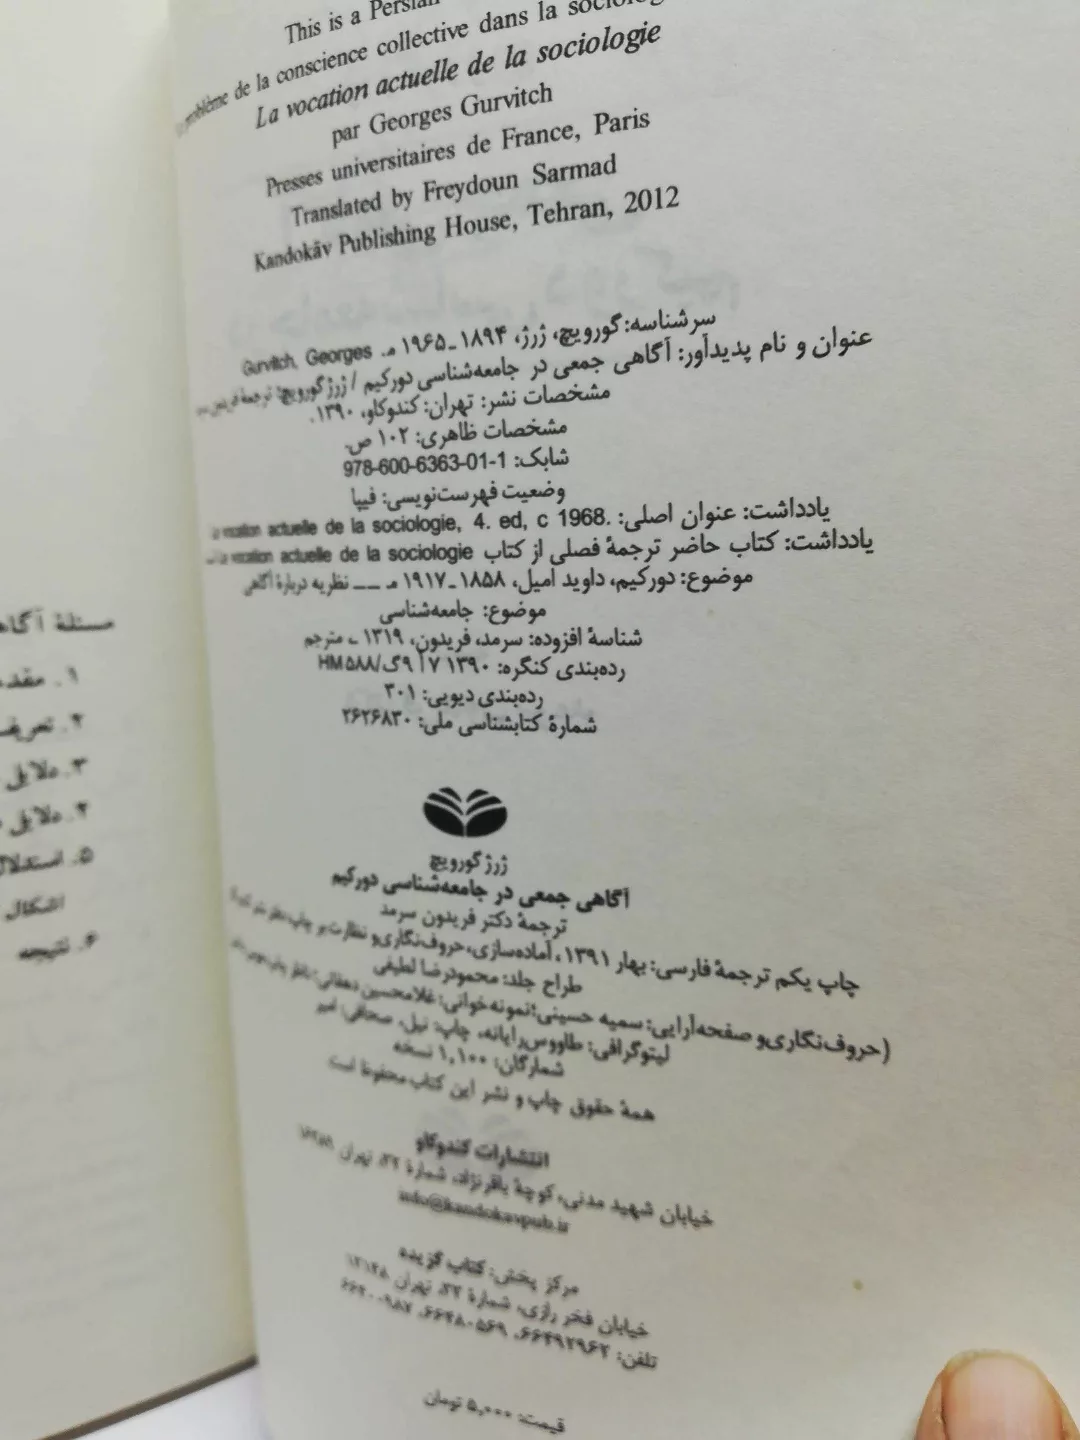 This is a Persian
problème de la conscience collective dans la
La vocation actuelle de la sociologie
par Georges Gurvitch
Presses universitaires de France, Paris
Translated by Freydoun Sarmad
Kandokāv Publishing House, Tehran, 2012
سرشناسه: گورویچ، ژرژ، ۱۸۹۴ـ۱۹۶۵ م. Gurvitch, Georges
عنوان و نام پدیدآور: آگاهی جمعی در جامعه‌شناسی دورکیم / ژرژ گورویچ؛ ترجمهٔ
مشخصات نشر: تهران: کندوکاو، ۱۳۹۰.
مشخصات ظاهری: ۱۰۲ ص.
شابک: 978-600-6363-01-1
وضعیت فهرست‌نویسی: فیپا
یادداشت: عنوان اصلی: La vocation actuelle de la sociologie, 4. ed, c 1968.
یادداشت: کتاب حاضر ترجمهٔ فصلی از کتاب La vocation actuelle de la sociologie
موضوع: دورکیم، داوید امیل، ۱۸۵۸ـ۱۹۱۷ م ــ نظریه دربارهٔ آگاهی
موضوع: جامعه‌شناسی
شناسهٔ افزوده: سرمد، فریدون، ۱۳۱۹ ـ، مترجم
رده‌بندی کنگره: ۱۳۹۰ ۷آ۹گ/HM۵۸۸
رده‌بندی دیویی: ۳۰۱
شمارهٔ کتابشناسی ملی: ۲۶۲۶۸۳۰
ژرژ گورویچ
آگاهی جمعی در جامعه‌شناسی دورکیم
ترجمهٔ دکتر فریدون سرمد
چاپ یکم ترجمهٔ فارسی: بهار ۱۳۹۱، آماده‌سازی، حروف‌نگاری و نظارت بر چاپ: دفتر نشر
طراح جلد: محمودرضا لطیفی
(حروف‌نگاری و صفحه‌آرایی: سمیه حسینی؛ نمونه‌خوانی: غلامحسین دهقانی؛ ناظر چاپ:
لیتوگرافی: طاووس‌رایانه، چاپ: نیل، صحافی:
شمارگان: ۱,۱۰۰ نسخه
همهٔ حقوق چاپ و نشر این کتاب محفوظ است
انتشارات کندوکاو
خیابان شهید مدنی، کوچهٔ باقرنژاد، شمارهٔ ۳۲، تهران
info@kandokavpub.ir
مرکز پخش: کتاب گزیده
خیابان فخر رازی، شمارهٔ ۳۲، تهران
تلفن: ۶۶۴۹۲۹۶۲، ۶۶۴۸۰۵۶۹، ۶۶۴۰۰۹۸۷
قیمت: ۵,۰۰۰ تومان
مسئلهٔ
۱.
۲.
۳. دلایلی
۴. دلایلی
۵.
اشکال
۶. نتیجه